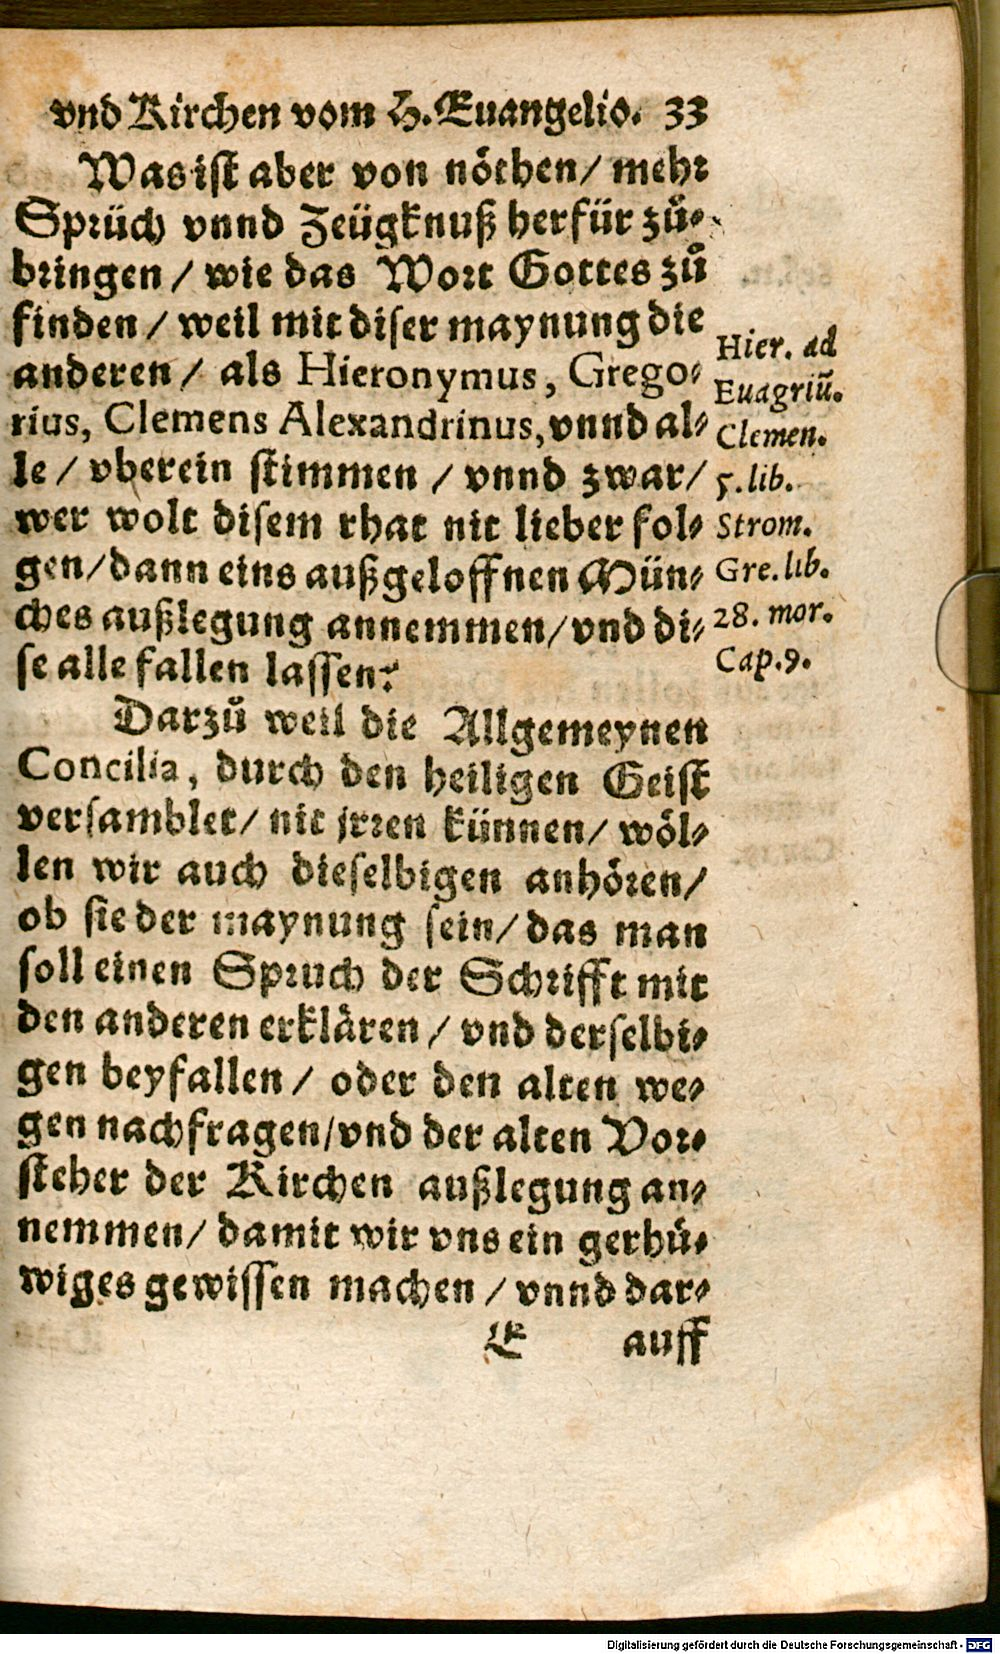 vnd Kirchen vom H. Euangelio. 33
Was ist aber von nöthen/ mehr
Sprüch vnnd Zeügknuß herfür zů-
bringen / wie das Wort Gottes zů
finden / weil mit diser maynung die
anderen / als Hieronymus, Grego-
rius, Clemens Alexandrinus, vnnd al-
le / vberein stimmen / vnnd zwar/
wer wolt disem rhat nit lieber fol-
gen/dann eins außgeloffnen Mün-
ches außlegung annemmen/vnd di-
se alle fallen lassen?
Hier. ad
Euagriū.
Clemen.
5. lib.
Strom.
Gre. lib.
28. mor.
Cap. 9.
Darzů weil die Allgemeynen
Concilia, durch den heiligen Geist
versamblet/ nit jrren künnen/ wöl-
len wir auch dieselbigen anhören/
ob sie der maynung sein/ das man
soll einen Spruch der Schrifft mit
den anderen erklären / vnd derselbi-
gen beyfallen / oder den alten we-
gen nachfragen/vnd der alten Vor-
steher der Kirchen außlegung an-
nemmen/ damit wir vns ein gerhů-
wiges gewissen machen / vnnd dar-
E auff
Digitalisierung gefördert durch die Deutsche Forschungsgemeinschaft - DFG